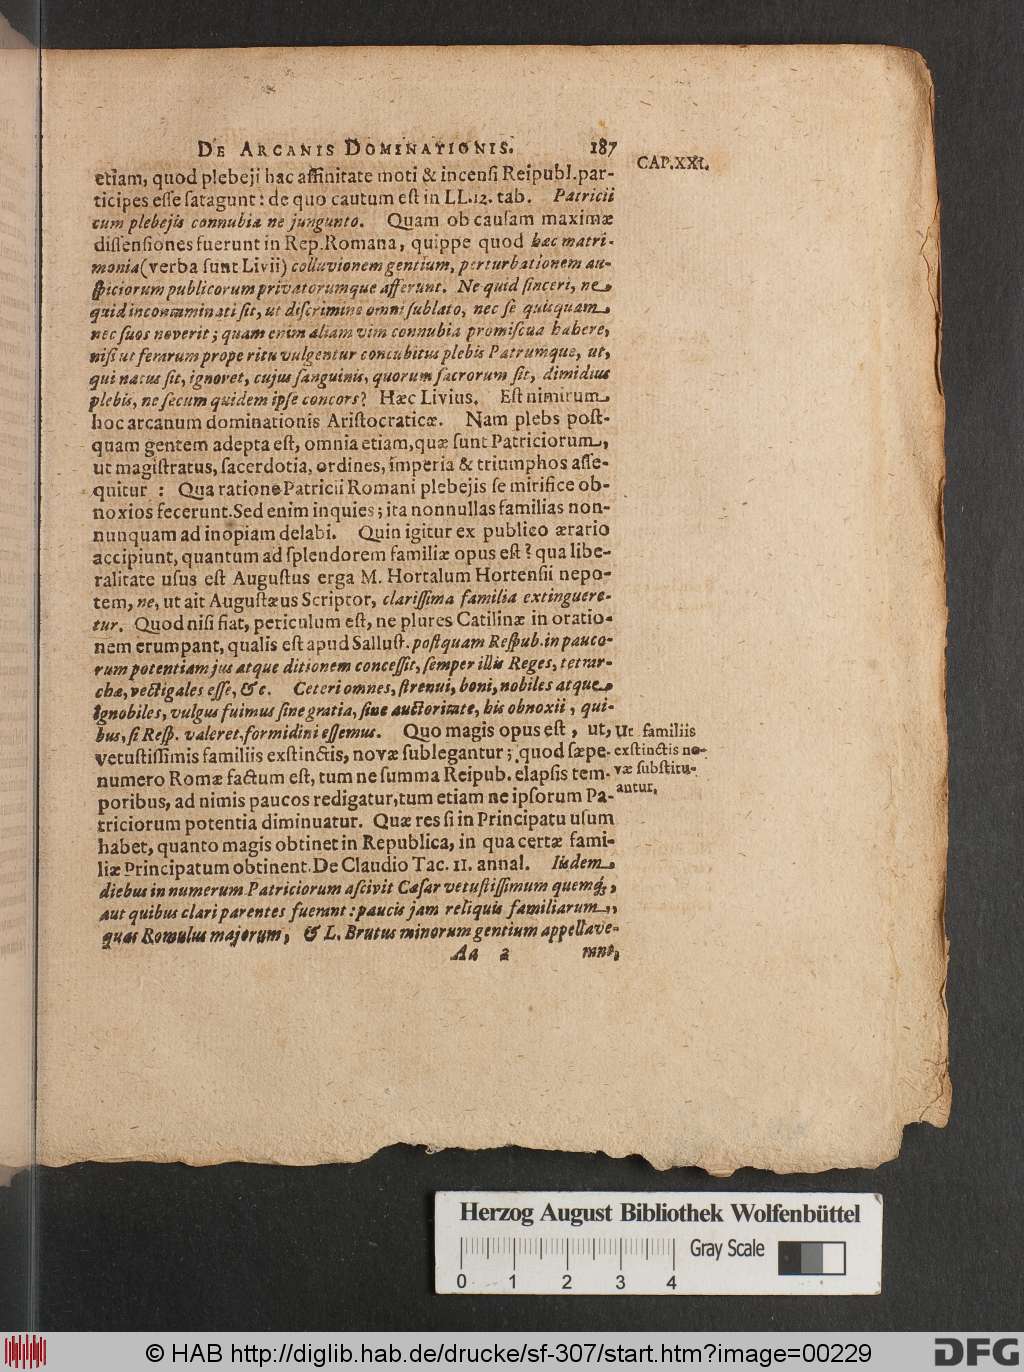 DE ARCANIS DOMINATIONIS. 187
CAP.XXI.
etiam, quod plebeji hac affinitate moti & incensi Reipubl. par-
ticipes esse satagunt: de quo cautum est in LL.12. tab. Patricii
cum plebejis connubia ne jungunto. Quam ob causam maximæ
dissensiones fuerunt in Rep. Romana, quippe quod hæc matri-
monia (verba sunt Livii) colluvionem gentium, perturbationem au-
spiciorum publicorum privatorumque afferunt. Ne quid sinceri, ne
quid incontaminati sit, ut discrimine omni sublato, nec sè quisquam
nec suos noverit; quam enim aliam vim connubia promiscua habere,
nisi ut ferarum prope ritu vulgentur concubitus plebis Patrumque, ut,
qui natus sit, ignoret, cujus sanguinis, quorum sacrorum sit, dimidius
plebis, ne secum quidem ipse concors? Hæc Livius. Est nimirum
hoc arcanum dominationis Aristocraticæ. Nam plebs post-
quam gentem adepta est, omnia etiam, quæ sunt Patriciorum,
ut magistratus, sacerdotia, ordines, imperia & triumphos asse-
quitur : Qua ratione Patricii Romani plebejis se mirifice ob-
noxios fecerunt. Sed enim inquies; ita nonnullas familias non-
nunquam ad inopiam delabi. Quin igitur ex publico ærario
accipiunt, quantum ad splendorem familiæ opus est? qua libe-
ralitate usus est Augustus erga M. Hortalum Hortensii nepo-
tem, ne, ut ait Augustæus Scriptor, clarissima familia extinguere-
tur. Quod nisi fiat, periculum est, ne plures Catilinæ in oratio-
nem erumpant, qualis est apud Sallust. postquam Respub. in pauco-
rum potentiam jus atque ditionem concessit, semper illis Reges, tetrar-
chæ, vectigales esse, &c. Ceteri omnes, strenui, boni, nobiles atque
ignobiles, vulgus fuimus sine gratia, sine auctoritate, his obnoxii, qui-
bus, si Resp. valeret, formidini essemus. Quo magis opus est, ut,
vetustissimis familiis exstinctis, novæ sublegantur; quod sæpe-
numero Romæ factum est, tum ne summa Reipub. elapsis tem-
poribus, ad nimis paucos redigatur, tum etiam ne ipsorum Pa-
triciorum potentia diminuatur. Quæ res si in Principatu usum
habet, quanto magis obtinet in Republica, in qua certæ fami-
liæ Principatum obtinent. De Claudio Tac. 11. annal. Iisdem
diebus in numerum Patriciorum ascivit Cæsar vetustissimum quemq́;,
aut quibus clari parentes fuerant: paucis jam reliquis familiarum,
quas Romulus majorum, & L. Brutus minorum gentium appellave-
Aa 2 rant,
Ut familiis
exstinctis no-
væ substitu-
antur.
Herzog August Bibliothek Wolfenbüttel
Gray Scale
0 1 2 3 4
© HAB http://diglib.hab.de/drucke/sf-307/start.htm?image=00229
DFG